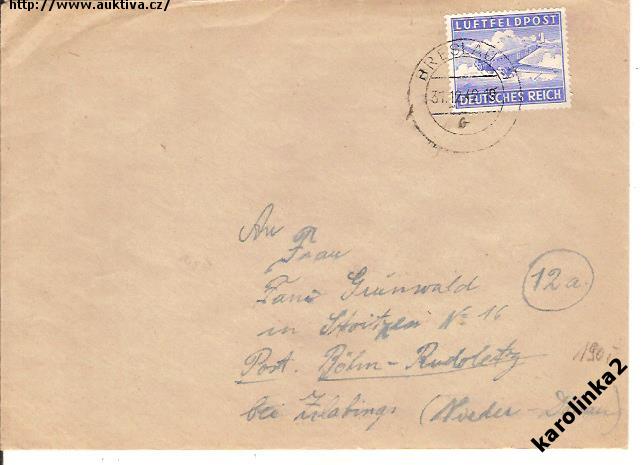 http://www.auktiva.cz/
LUFTFELDPOST
BRESLAU
31.12.42.18
DEUTSCHES REICH
G
An
Frau
Fani Grünwald
12a.
in Stoitzen No 16
Post. Böhm-Rudoletz
bei Zlabings (Nieder-Donau)
karolinka2